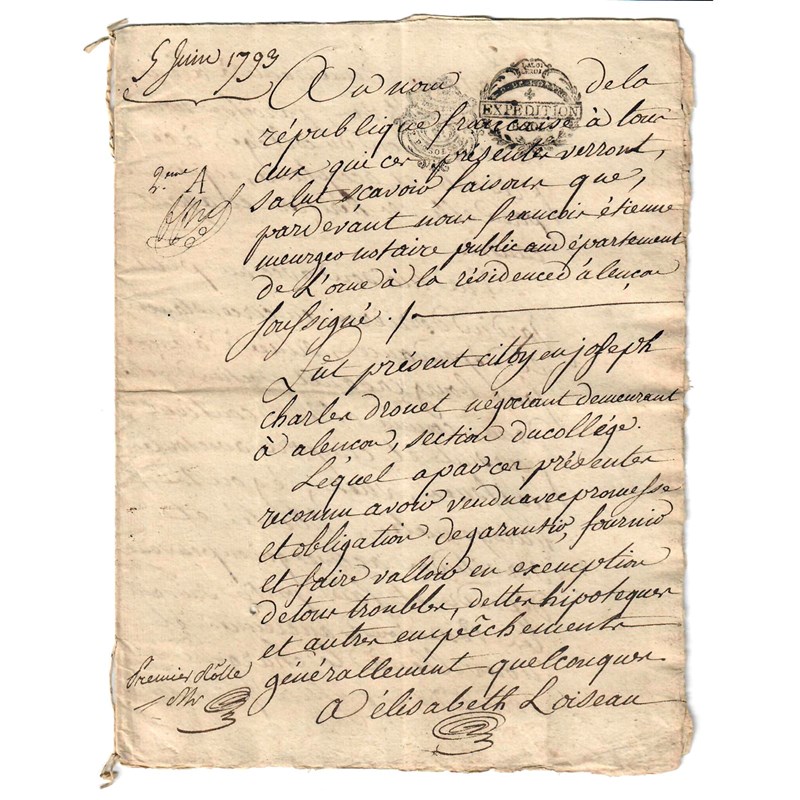 5 Juin 1793
Au nom de la
EXPEDITION
république française à tous
ceux qui ces présentes verront,
2.eme A
salut scavoir faisons que,
pardevant nous françois étienne
meurgeo notaire public au département
de L'orne à la résidence d'alençon
soussigné . /
Fut présent citoyen joseph
charles drouet négociant demeurant
à alencon, section du collége.
Léquel a par ces présentes
reconnu avoir vendu avec promesse
et obligation de garantir, fournir
et faire valloir en exemption
de tous troubles, dettes hipoteques
et autres empêchements
générallement quelconques
Premier Rôlle
A élisabeth Loiseau